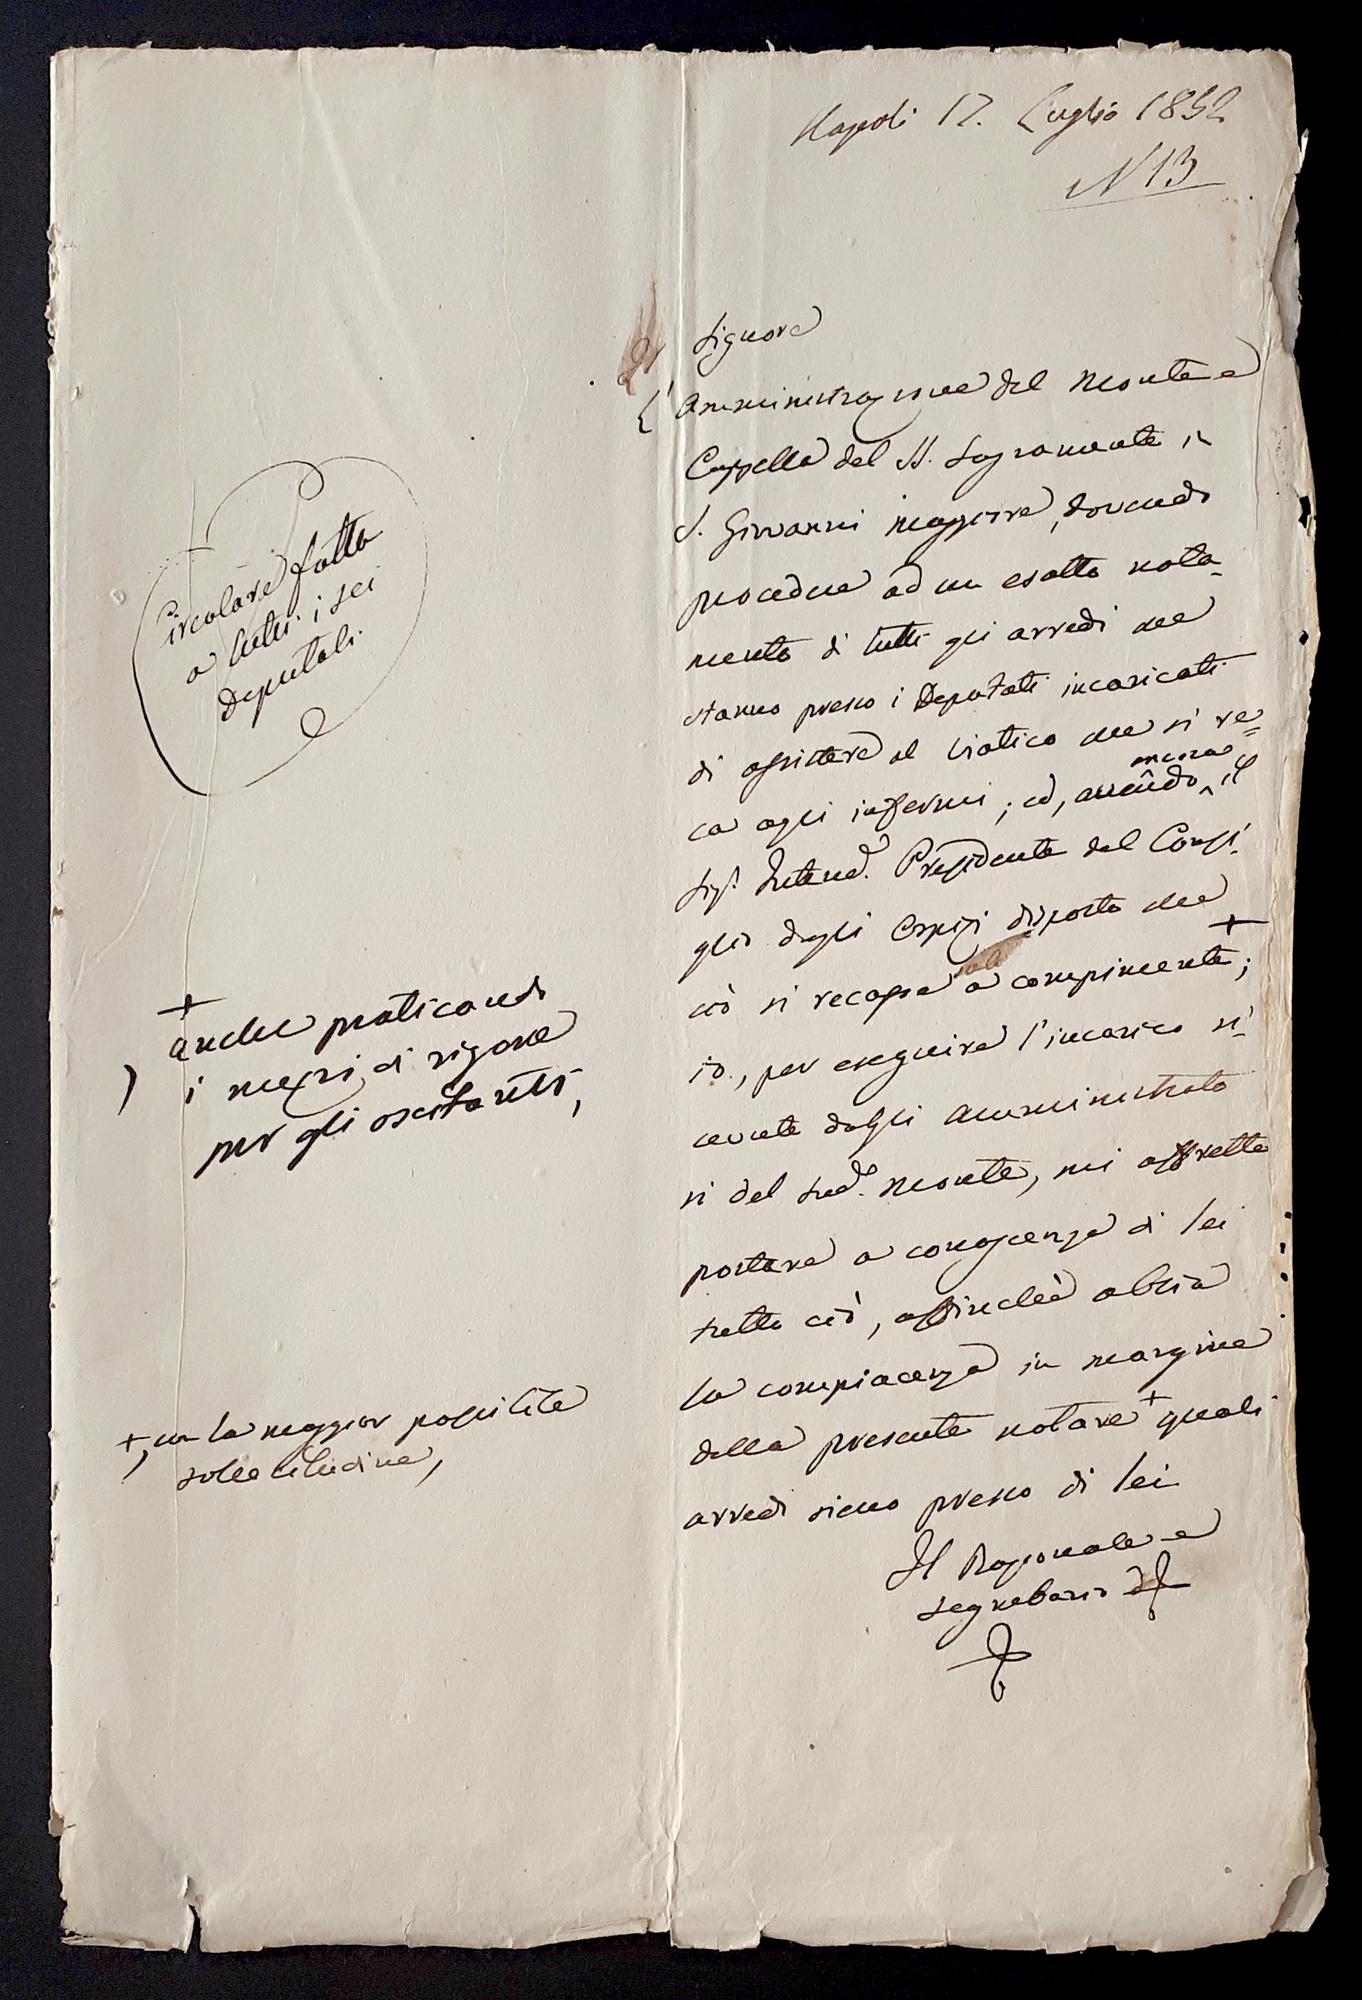 Napoli 17. Luglio 1852
N 13
Signore
L'Amministrazione del Monte e
Cappella del SS. Sagramento in
S. Giovanni maggiore, dovendo
procedere ad un esatto nota-
mento di tutti gli arredi che
stanno presso i Deputati incaricati
di assistere al Viatico che si re=
ca agli infermi; ed, avendo ^ ancora il
Sig.r Intend.e Presidente del Consi-
glio degli Ospizi disposto che
ciò si recasse a compimento +;
io, per eseguire l'incarico ri-
cevuto dagli Amministrato
ri del sud.o Monte, mi affretto
portare a conoscenza di lei
tutto ciò, affinchè abbia
la compiacenza in margine
della presente notare + quali
arredi sieno presso di lei
Il Razionale e
Segretario
Circolare fatta
a tutti i sei
deputati
+
anche praticando
i mezzi di rigore
per gli oscitanti,
+, con la maggior possibile
sollecitudine,